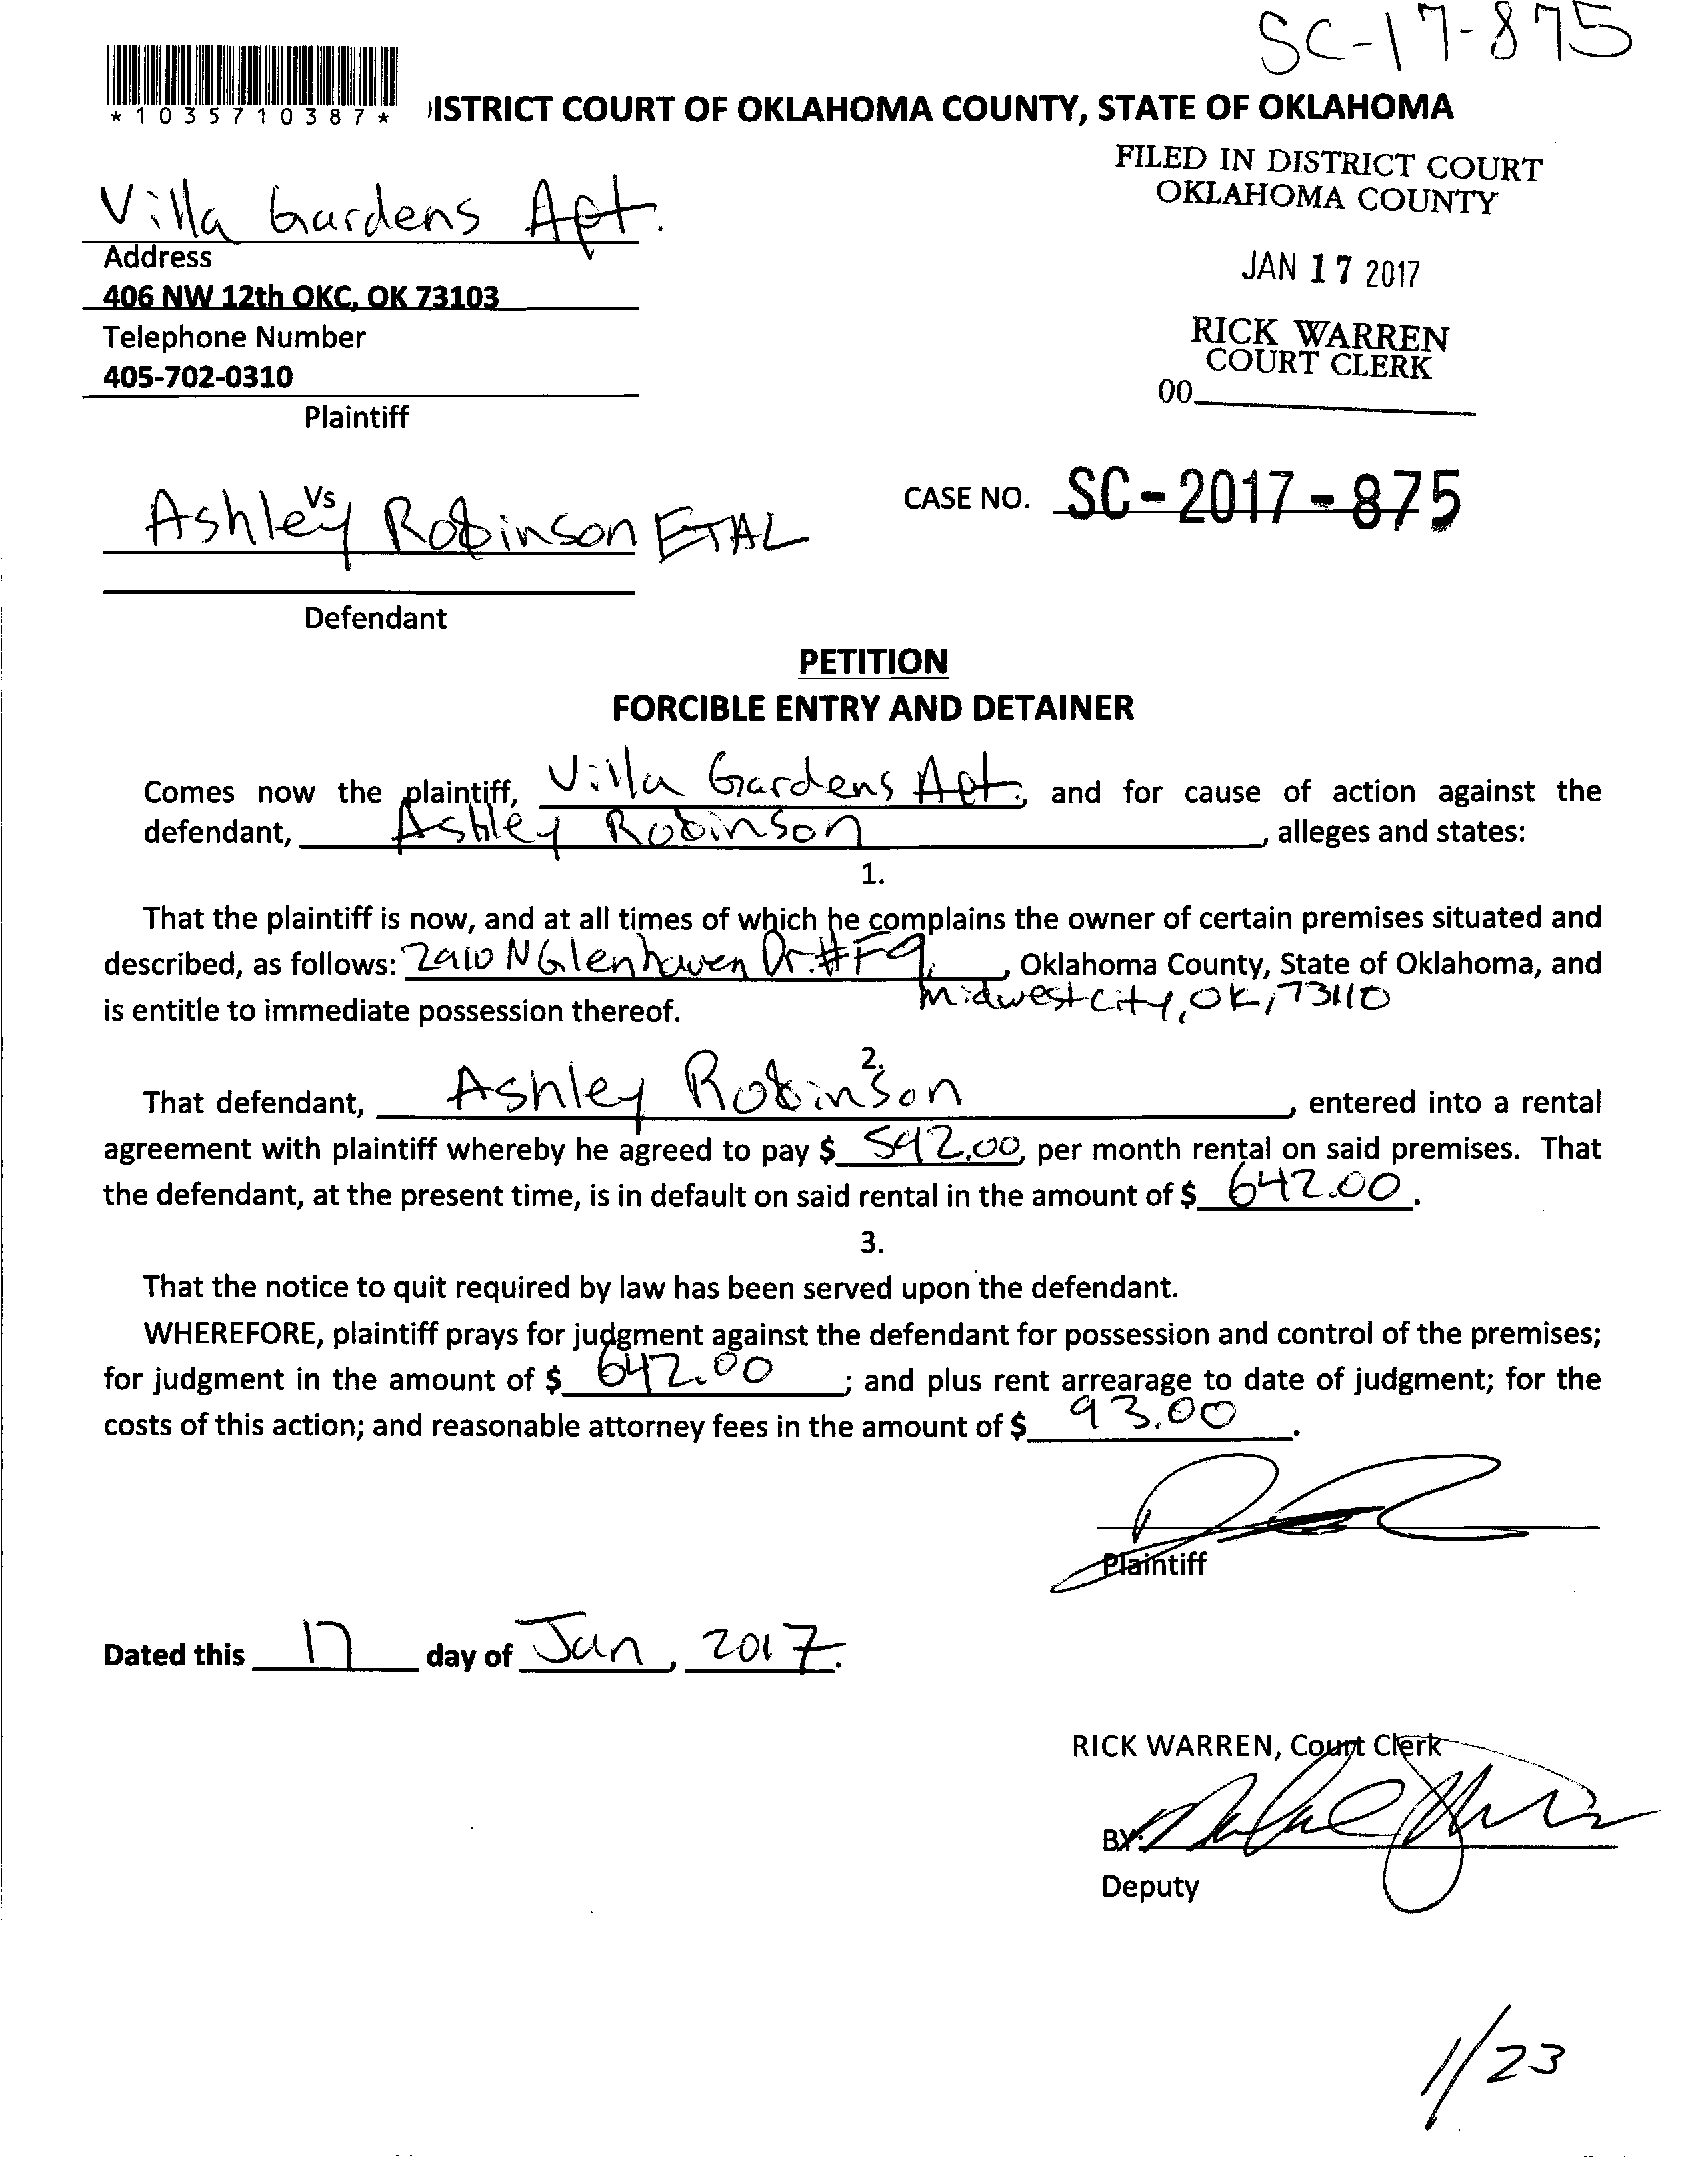 SC-17-875
*1035710387*
ISTRICT COURT OF OKLAHOMA COUNTY, STATE OF OKLAHOMA
FILED IN DISTRICT COURT
OKLAHOMA COUNTY
JAN 17 2017
RICK WARREN
COURT CLERK
00
Villa Gardens Apt.
Address
406 NW 12th OKC, OK 73103
Telephone Number
405-702-0310
Plaintiff
Vs
Ashley Robinson ETAL
CASE NO. SC-2017-875
Defendant
PETITION
FORCIBLE ENTRY AND DETAINER
Comes now the plaintiff, Villa Gardens Apt., and for cause of action against the
defendant, Ashley Robinson, alleges and states:
1.
That the plaintiff is now, and at all times of which he complains the owner of certain premises situated and
described, as follows: 2910 N Glenhaven Dr. #F9, Oklahoma County, State of Oklahoma, and
Midwest City, OK, 73110
is entitle to immediate possession thereof.
2.
That defendant, Ashley Robinson, entered into a rental
agreement with plaintiff whereby he agreed to pay $ 542.00, per month rental on said premises. That
the defendant, at the present time, is in default on said rental in the amount of $ 642.00.
3.
That the notice to quit required by law has been served upon the defendant.
WHEREFORE, plaintiff prays for judgment against the defendant for possession and control of the premises;
for judgment in the amount of $ 642.00; and plus rent arrearage to date of judgment; for the
costs of this action; and reasonable attorney fees in the amount of $ 93.00.
Plaintiff
Dated this 17 day of Jan, 2017.
RICK WARREN, Court Clerk
BY:
Deputy
1/23